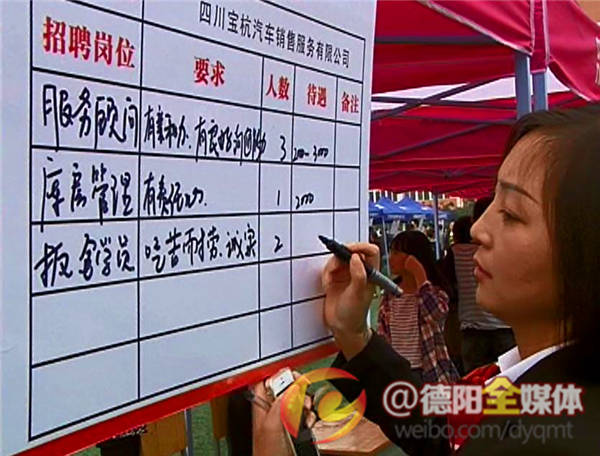 四川宝杭汽车销售服务有限公司
招聘岗位 要求 人数 待遇 备注
服务顾问 有亲和力、有良好沟通 3 2000-3000
库房管理 有责任心. 1 2000
学员 吃苦而劳、诚实 2
@德阳全媒体
weibo.com/dyqmt